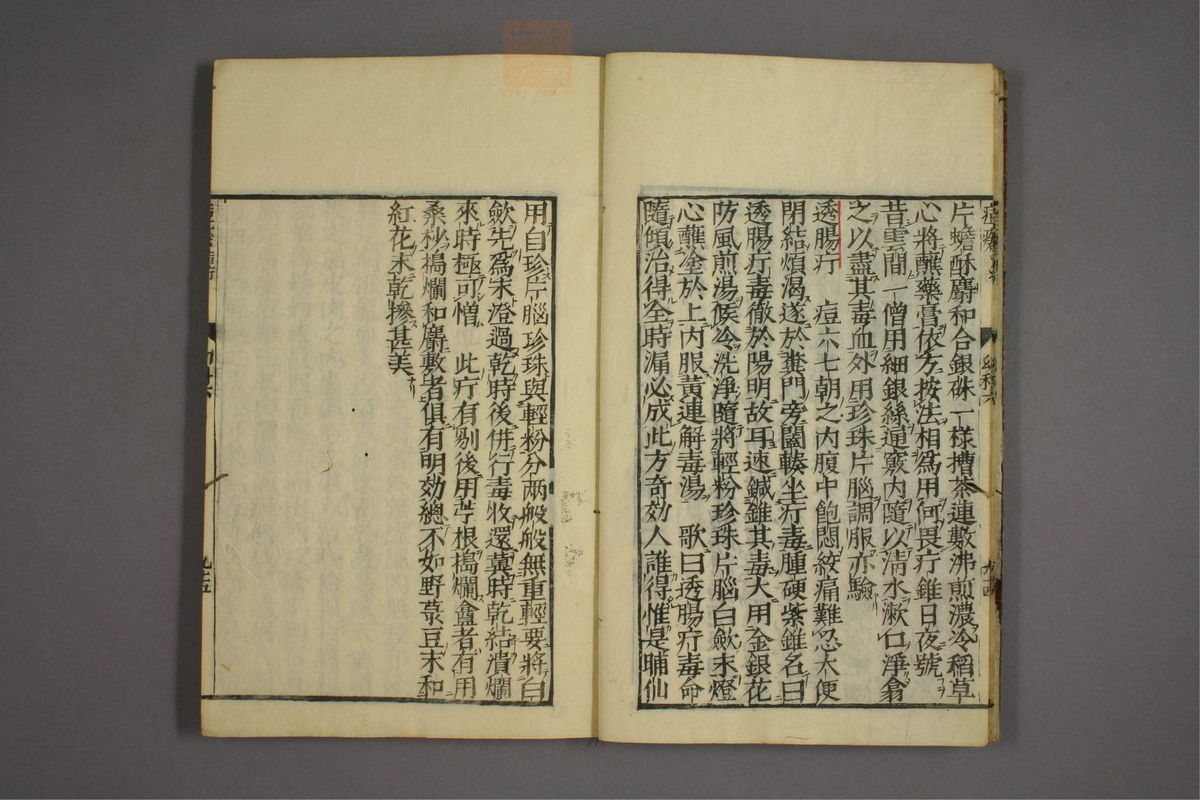 片蟾酥麝和合銀硃一樣擂茶連敷沸煎濃冷稻草
心將蘸藥膏依方按法相爲用何畏疔錐日夜號
昔雲間一僧用細銀絲通竅內隨以清水漱口淨翕
之以盡其毒血外用珍珠片腦調服亦驗
透腸疔 痘六七朝之內腹中飽悶絞痛難忍大便
閉結煩渴遂於糞門旁闔輳坐疔毒腫硬紫錐名曰
透腸疔毒徹於陽明故耳速鍼錐其毒大用金銀花
防風煎湯候冷洗淨隨將輕粉珍珠片腦白歛末燈
心蘸塗於上內服黃連解毒湯 歌曰透腸疔毒命
隨傾治得全時漏必成此方奇効人誰得惟是晡仙
用自珍片腦珍珠與輕粉分兩般般無重輕要將白
歛先爲末澄過乾時後併行毒收還冀時乾結潰爛
來時極可憎 此疔有剔後用苧根搗爛盦者有用
桑杪搗爛和麝敷者俱有明効總不如野菉豆末和
紅花末乾摻甚美
九十四
九十五